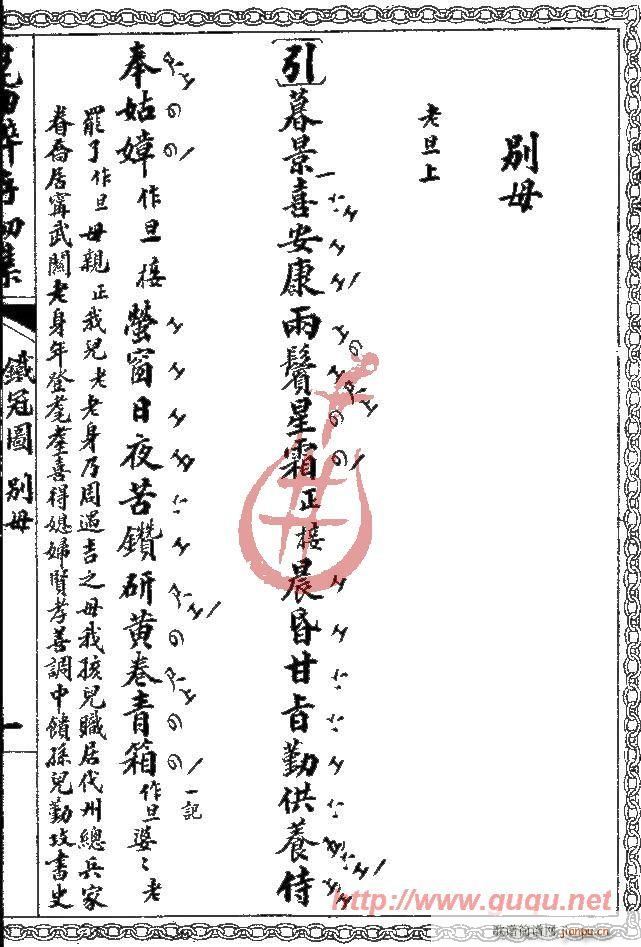 別母
老旦上
[引]暮景喜安康兩鬢星霜正接晨昏甘旨勤供養侍
奉姑嫜作旦接螢窗日夜苦鑽研黃卷青箱作旦婆〻老
一記
罷了作旦母親正我兒老老身乃周遇吉之母我孩兒職居代州總兵家
眷喬居甯武關老身年登耄耋喜得媳婦賢孝善調中饋孫兒勤攻書史
鐵冠圖 別母
一
http://www.guqu.net
歌譜簡譜網
jianpu.cn